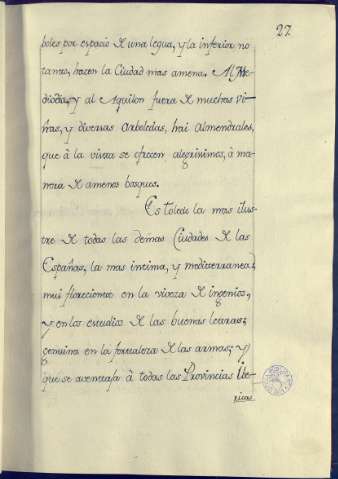 27
boles por espacio de una legua, y la inferior no
tanto, hacen la Ciudad mas amena. Al Me-
diodia, y al Aquilon fuera de muchas vi-
ñas, y diversas Arboledas, hai Almendrales,
que à la vista se ofrecen alegrisimos, à ma-
nera de amenos bosques.
Es Toledo la mas ilus-
tre de todas las demas Ciudades de las
Españas, la mas intima, y mediterranea,
mui floreciente en la viveza de ingenios,
y en los estudios de las buenas letras;
genuina en la fortaleza de las armas; y
que se aventaja à todas las Provincias Ibe-
ricas